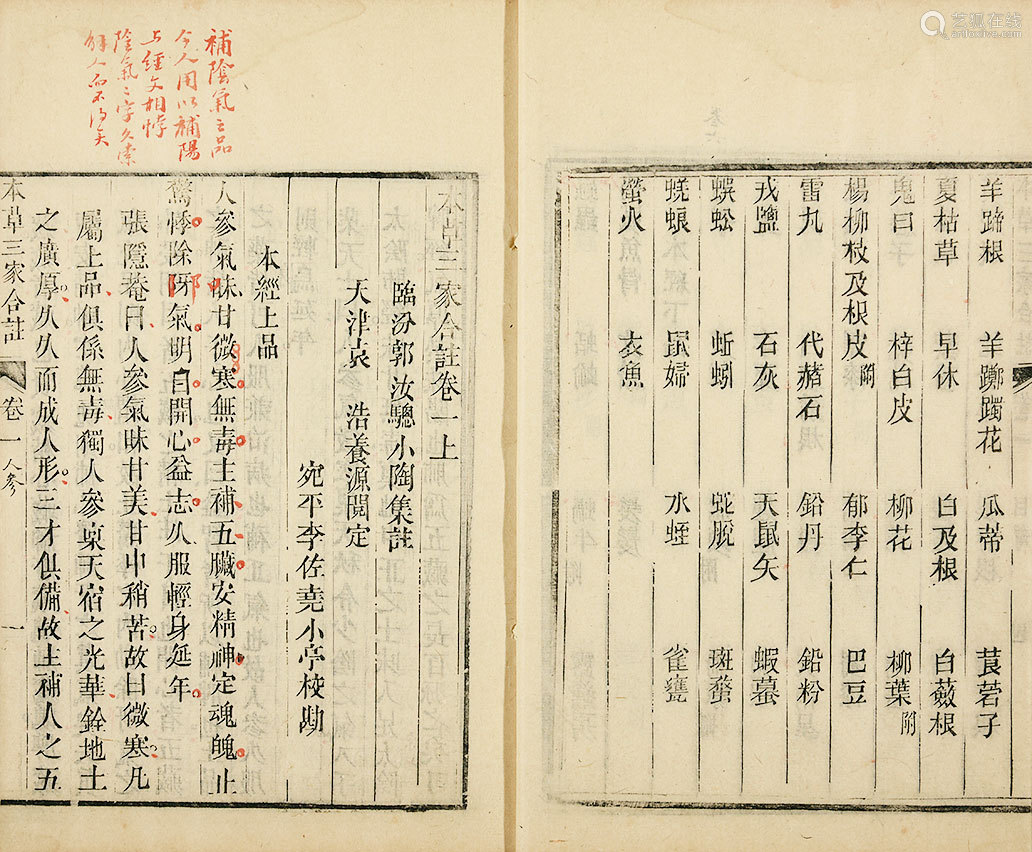 艺狐在线
artfoxlive.com
羊蹄根 羊躑躅花 瓜蒂 莨菪子
夏枯草 早休 白及根 白薇根
鬼臼 梓白皮 柳花 柳葉附
楊柳枝及根皮附 郁李仁 巴豆
雷丸 代赭石 鉛丹 鉛粉
戎鹽 石灰 天鼠矢 蝦蟇
蜈蚣 蚯蚓 蛇脫 斑蝥
蜣蜋 鼠婦 水蛭 雀甕
螢火 衣魚
補陰氣之品
今人用以補陽
与經文相悖
陰氣二字久索
解人而不得矣
本草三家合註卷一上
臨汾郭汝驄小陶集註
天津袁 浩養源閱定
宛平李佐堯小亭校勘
本經上品
人參氣味甘微寒無毒主補五臟安精神定魂魄止
驚悸除邪氣明目開心益志久服輕身延年
張隱菴曰人參氣味甘美甘中稍苦故曰微寒凡
屬上品俱係無毒獨人參稟天宿之光華鍾地土
之廣厚久久而成人形三才俱備故主補人之五
本草三家合註 卷一 人參 一